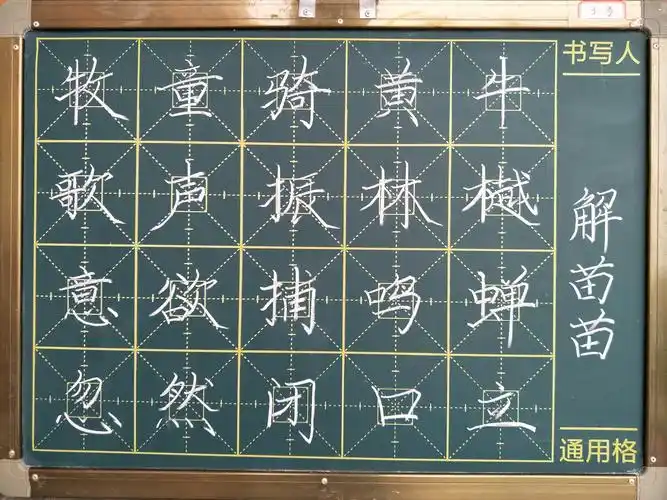 牧童骑黄牛
歌声振林樾
意欲捕鸣蝉
忽然闭口立
书写人
解苗苗
通用格